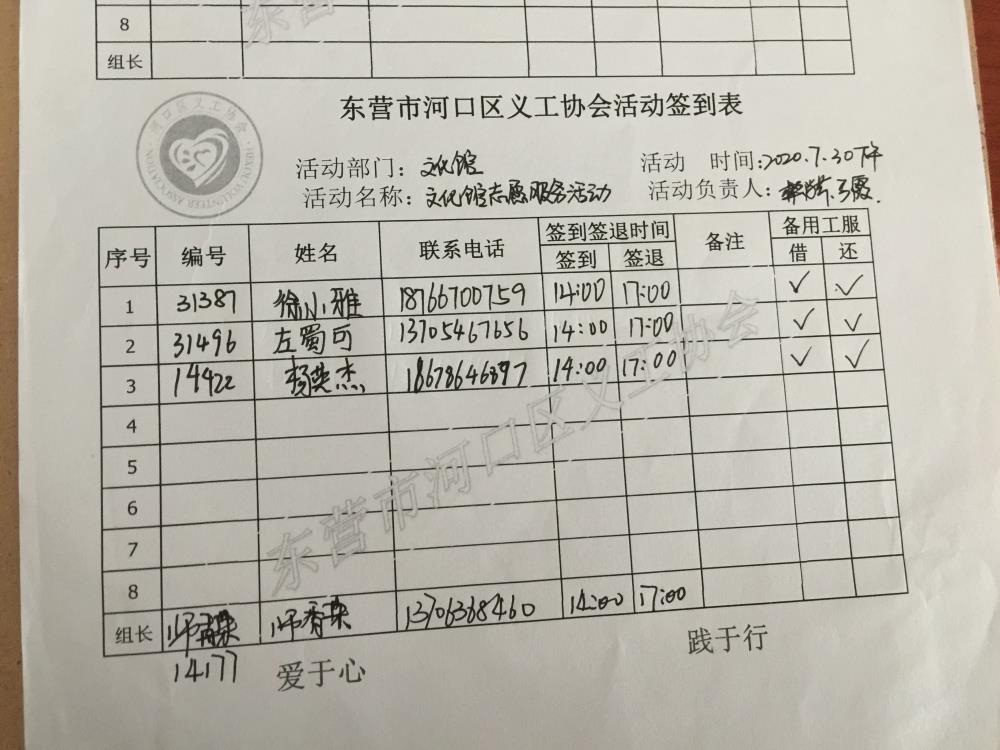 8
组长
东营市河口区义工协会活动签到表
河口区义工协会
HEKOU VOLUNTEER ASSOCIATION
活动部门：文化馆 活动 时间：2020.7.30下午
活动名称：文化馆志愿服务活动 活动负责人：
序号 编号 姓名 联系电话 签到签退时间 备注 备用工服
签到 签退 借 还
1 31387 徐小雅 18766700759 14:00 17:00 ✓ ✓
2 31496 左蜀可 13705467656 14:00 17:00 ✓ ✓
3 14422 杨英杰 18678646897 14:00 17:00 ✓ ✓
4
5
6
7
8
组长 师香荣 13706368460 14:00 17:00
14177 爱于心 践于行
东营市河口区义工协会